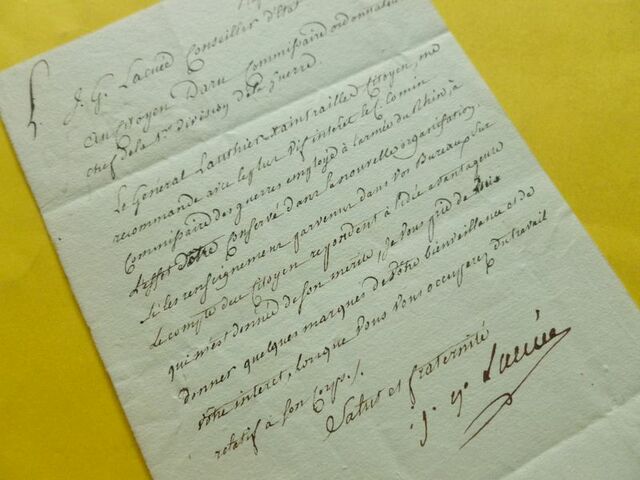 J. G. Lacuée Conseiller d'Etat
Au Citoyen Daru Commissaire ordonnateur
chef de la 1re division de la Guerre.
Le Général Lauthier Xaintrailles Citoyen, me
recommande avec le plus vif interet le C.
Commissaire des guerres employé à l'armée du Rhin, à
l'effet d'être Conservé dans la nouvelle organisation.
Si les renseignemens parvenus dans vos Bureaux sur
le compte du Citoyen repondent à l'idée avantageuse
qui m'est donnée de son mérite, je vous prie de lui
donner quelques marques de vôtre bienveillance et de
vôtre interet, lorsque vous vous occuperez du travail
relatif à son Corps./.
Salut et fraternité
J. G. Lacuée